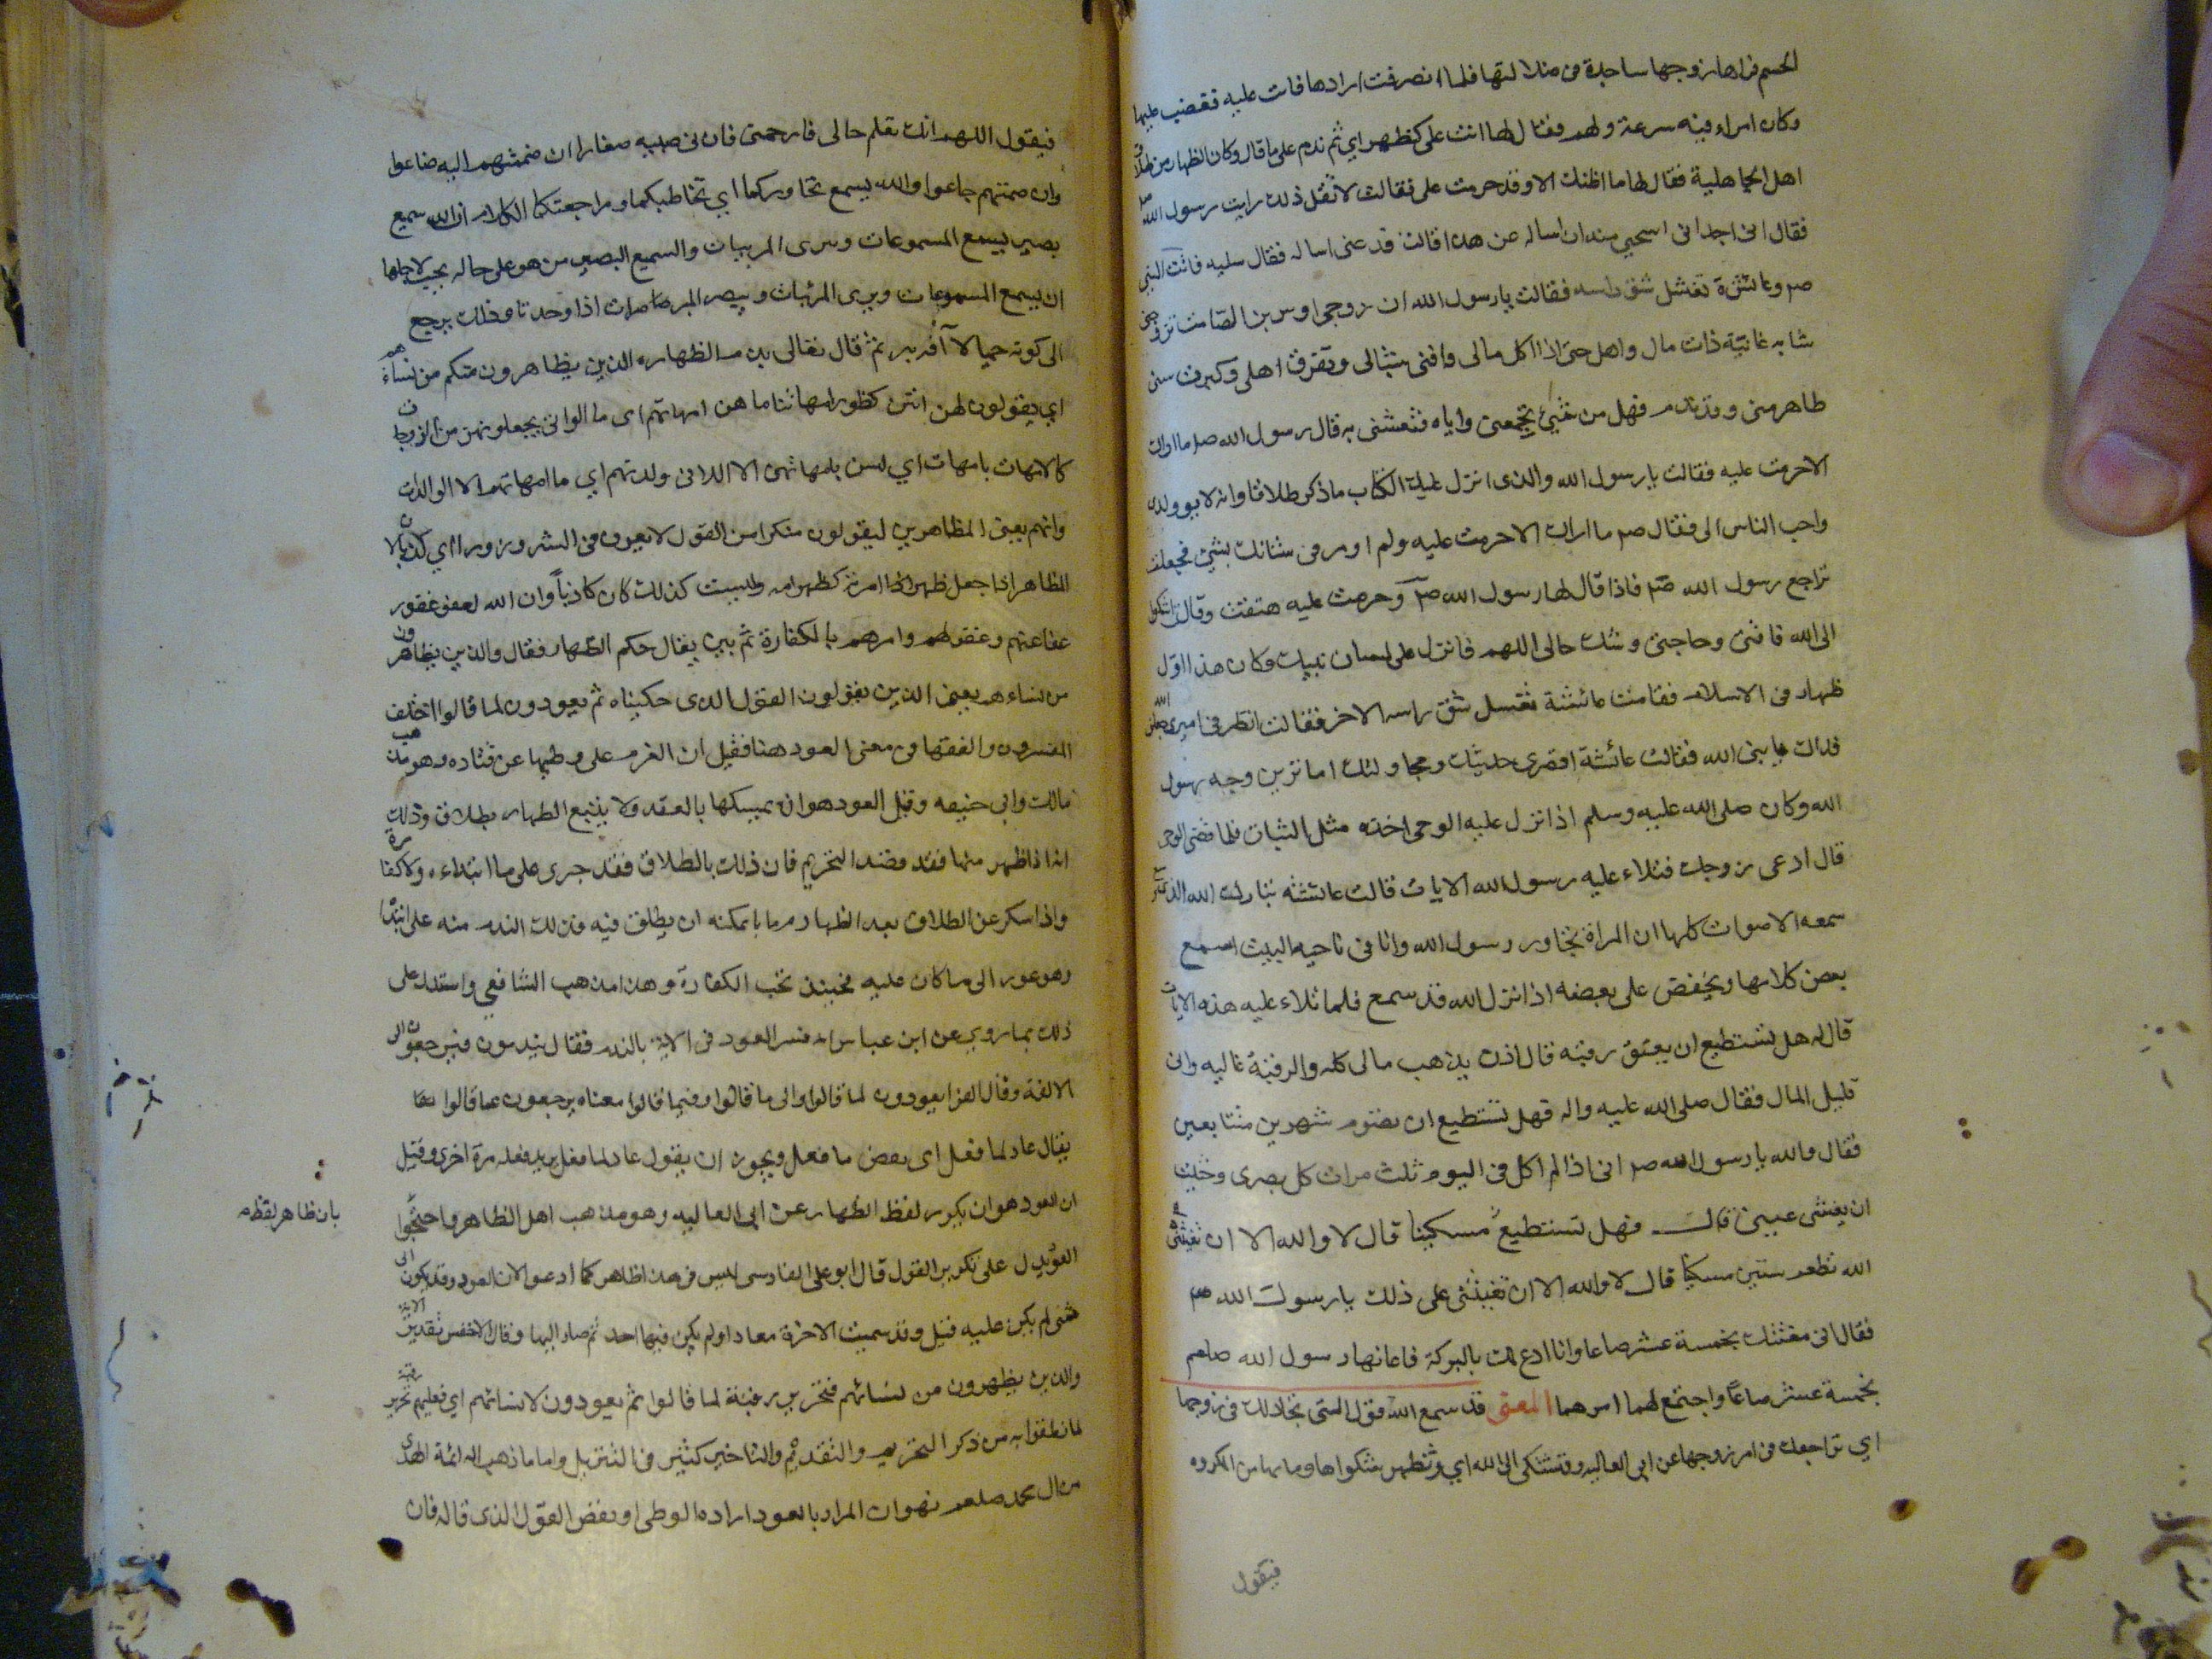 الجسم فراها زوجها ساجدة فى صلاتها فلما انصرفت ارادها فابت عليه فغضب عليها
وكان امراء فيه سرعة ولمم فقال لها انت على كظهر اى ثم ندم على ما قال وكان الظهار من طلاق
اهل الجاهلية فقال لها ما اظنك الا وقد حرمت على فقالت لا تقل ذلك رايت رسول الله صلى
فقال انى اجد انى استحيى منه ان اساله عن هذا قالت فدعنى اساله فقال سليه فاتت النبى
صم وعائشة تغسل شق راسه فقالت يا رسول الله ان زوجى اوس بن الصامت تزوجنى
شابه غانية ذات مال واهل حتى اذا اكل مالى وافنى شبابى وتفرق اهلى وكبرت سنى
ظاهر منى وقد ندم فهل من شىء يجمعنى واياه فتنعشنى به قال رسول الله صم ما اراك
الا حرمت عليه فقالت يا رسول الله والذى انزل عليك الكتاب ما ذكر طلاقا وانه لابو ولدى
واحب الناس الى فقال صم ما اراك الا حرمت عليه ولم اومر فى شانك بشىء فجعلت
تراجع رسول الله صم فاذا قال لها رسول الله صم وحرمت عليه هتفت وقالت اشكوا
الى الله فاقتى وحاجتى وشدة حالى اللهم فانزل على لسان نبيك وكان هذا اول
ظهار فى الاسلام فقامت عائشة تغسل شق راسه الاخر فقالت انظر فى امرى جعلنى الله
فداك يا نبى الله فقالت عائشة اقصرى حديثك ومجادلتك اما ترين وجه رسول
الله وكان صلى الله عليه وسلم اذا نزل عليه الوحى اخذه مثل السبات فلما قضى الوحى
قال ادعى زوجك فتلاء عليه رسول الله الايات قالت عائشة تبارك الله الذى
سمعه الاصوات كلها ان المراة تحاور رسول الله وانا فى ناحية البيت اسمع
بعض كلامها ويخفض على بعضه اذا نزل الله قد سمع فلما تلاء عليه هذه الايات
قال له هل تستطيع ان يعتق رقبة قال اذن يذهب مالى كله والرقبة غاليه وانى
قليل المال فقال صلى الله عليه واله فهل تستطيع ان تصوم شهرين متتابعين
فقال والله يا رسول الله صم انى اذا لم اكل فى اليوم ثلث مرات كل بصرى وخشيت
ان يعشى عيينى قال فهل تستطيع مسكينا قال لا والله الا ان تعيننى
الله تطعم ستين مسكينا قال لا والله الا ان تعيننى على ذلك يا رسول الله صم
فقال انى معينك بخمسة عشر صاعا وانا ادع لك بالبركة فاعانها رسول الله صلعم
بخمسة عشر صاعا واجتمع لهما امرهما المعنى قد سمع الله قول التى تجادلك فى زوجها
اي تراجعك فى امر زوجها عن ابى العاليه وتشتكى الى الله اي وتظهر شكواها وما بها من المكروه
فيقول
فيقول اللهم انك تعلم حالى فارحمنى فان لى صبيه صغارا ان ضممتهم اليه ضاعوا
وان ضممتهم جاعوا والله يسمع تحاوركما اي تخاطبكما ومراجعتكما الكلام ان الله سميع
بصير يسمع المسموعات ويرى المرييات والسميع البصير من هو على حاله يجب لاجلها
ان يسمع المسموعات ويرى المرئيات ويبصر المبصرات اذا وجدتا وذلك يرجع
الى كونه حيا لا آفة به ثم قال تعالى يذم الظهار الذين يظاهرون منكم من نسائهم
اي يقولون لهن انتن كظهور امهاتنا ما هن امهاتهم اى ما الواتى يجعلونهن من الزوجات
كالامهات بامهات اي ليس بامهاتهم الا اللائى ولدنهم اي ما امهاتهم الا الوالدات
وانهم يعنى المظاهرين ليقولون منكرا من القول لا يعرف فى الشرع وزورا اي كذبا لان
المظاهر اذا جعل ظهر امراته كظهر امه وليست كذلك كان كاذبا وان الله لعفو غفور
عفا عنهم وغفر لهم وامرهم بالكفارة ثم بين تعالى حكم الظهار فقال والذين يظاهرون
من نساءهم يعنى الذين يقولون القول الذى حكيناه ثم يعودون لما قالوا اختلف
المفسرون والفقها فى معنى العود هنا فقيل ان العزم على وطيها عن قتاده وهو مذهب
مالك وابى حنيفه وقيل العود هو ان يمسكها بالعقد ولا يتبع الظهار بطلاق وذلك
انه اذا ظهر منها فقد قصد التحريم فان ذلك بالطلاق فقد جرى على ما ابتداءه ولا كفارة
واذا سكر عن الطلاق بعد الظهار زمانا يمكنه ان يطلق فيه فذلك الندم منه على ابتداء
وهو عود الى ما كان عليه فحينئذ تجب الكفارة وهذا مذهب الشافعى واستدل على
ذلك بما روى عن ابن عباس انه فسر العود فى الاية بالندم فقال يندمون فيرجعون الى
الالفة وقال الفرا يعودون لما قالوا والى ما قالوا وفيما قالوا معناه يرجعون عما قالوا
يقال عاد لما فعل اى نقض ما فعل ويجوز ان يقول عاد لما فعل يريد فعله مرة اخرى وقيل
ان العود هو ان يكرر لفظ الظهار عن ابى العاليه وهو مذهب اهل الظاهر واحتجوا
بان ظاهر لفظه
العود يدل على تكرير القول قال ابو على الفارسى ليس فى هذا ظاهر كما ادعوا لان العود قد يكون الى
شى لم يكن عليه قبل وقد سميت الاخرة معادا ولم يكن فيها احد ثم صار اليها وقال الاخفش تقدير الاية
والذين يظهرون من نسائهم فتحرير رقبة لما قالوا ثم يعودون لا نسائهم اي فعليهم تحرير رقبة
لما نطقوا به من ذكر التحريم والتقديم والتاخير كثير فى التنزيل واما ما ذهب اليه ائمة الهدى
من ال محمد صلعم فهو ان المراد بالعود اراده الوطى او نقض القول الذى قاله فان